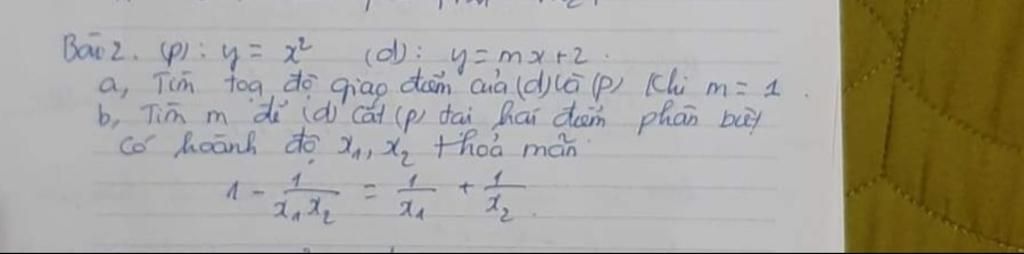 Bài 2. (P): y = x² (d): y = mx + 2.
a, Tìm toạ độ giao điểm của (d) và (P) khi m = 1.
b, Tìm m để (d) cắt (P) tại hai điểm phân biệt
có hoành độ x₁, x₂ thoả mãn
1 - 1/(x₁x₂) = 1/x₁ + 1/x₂.